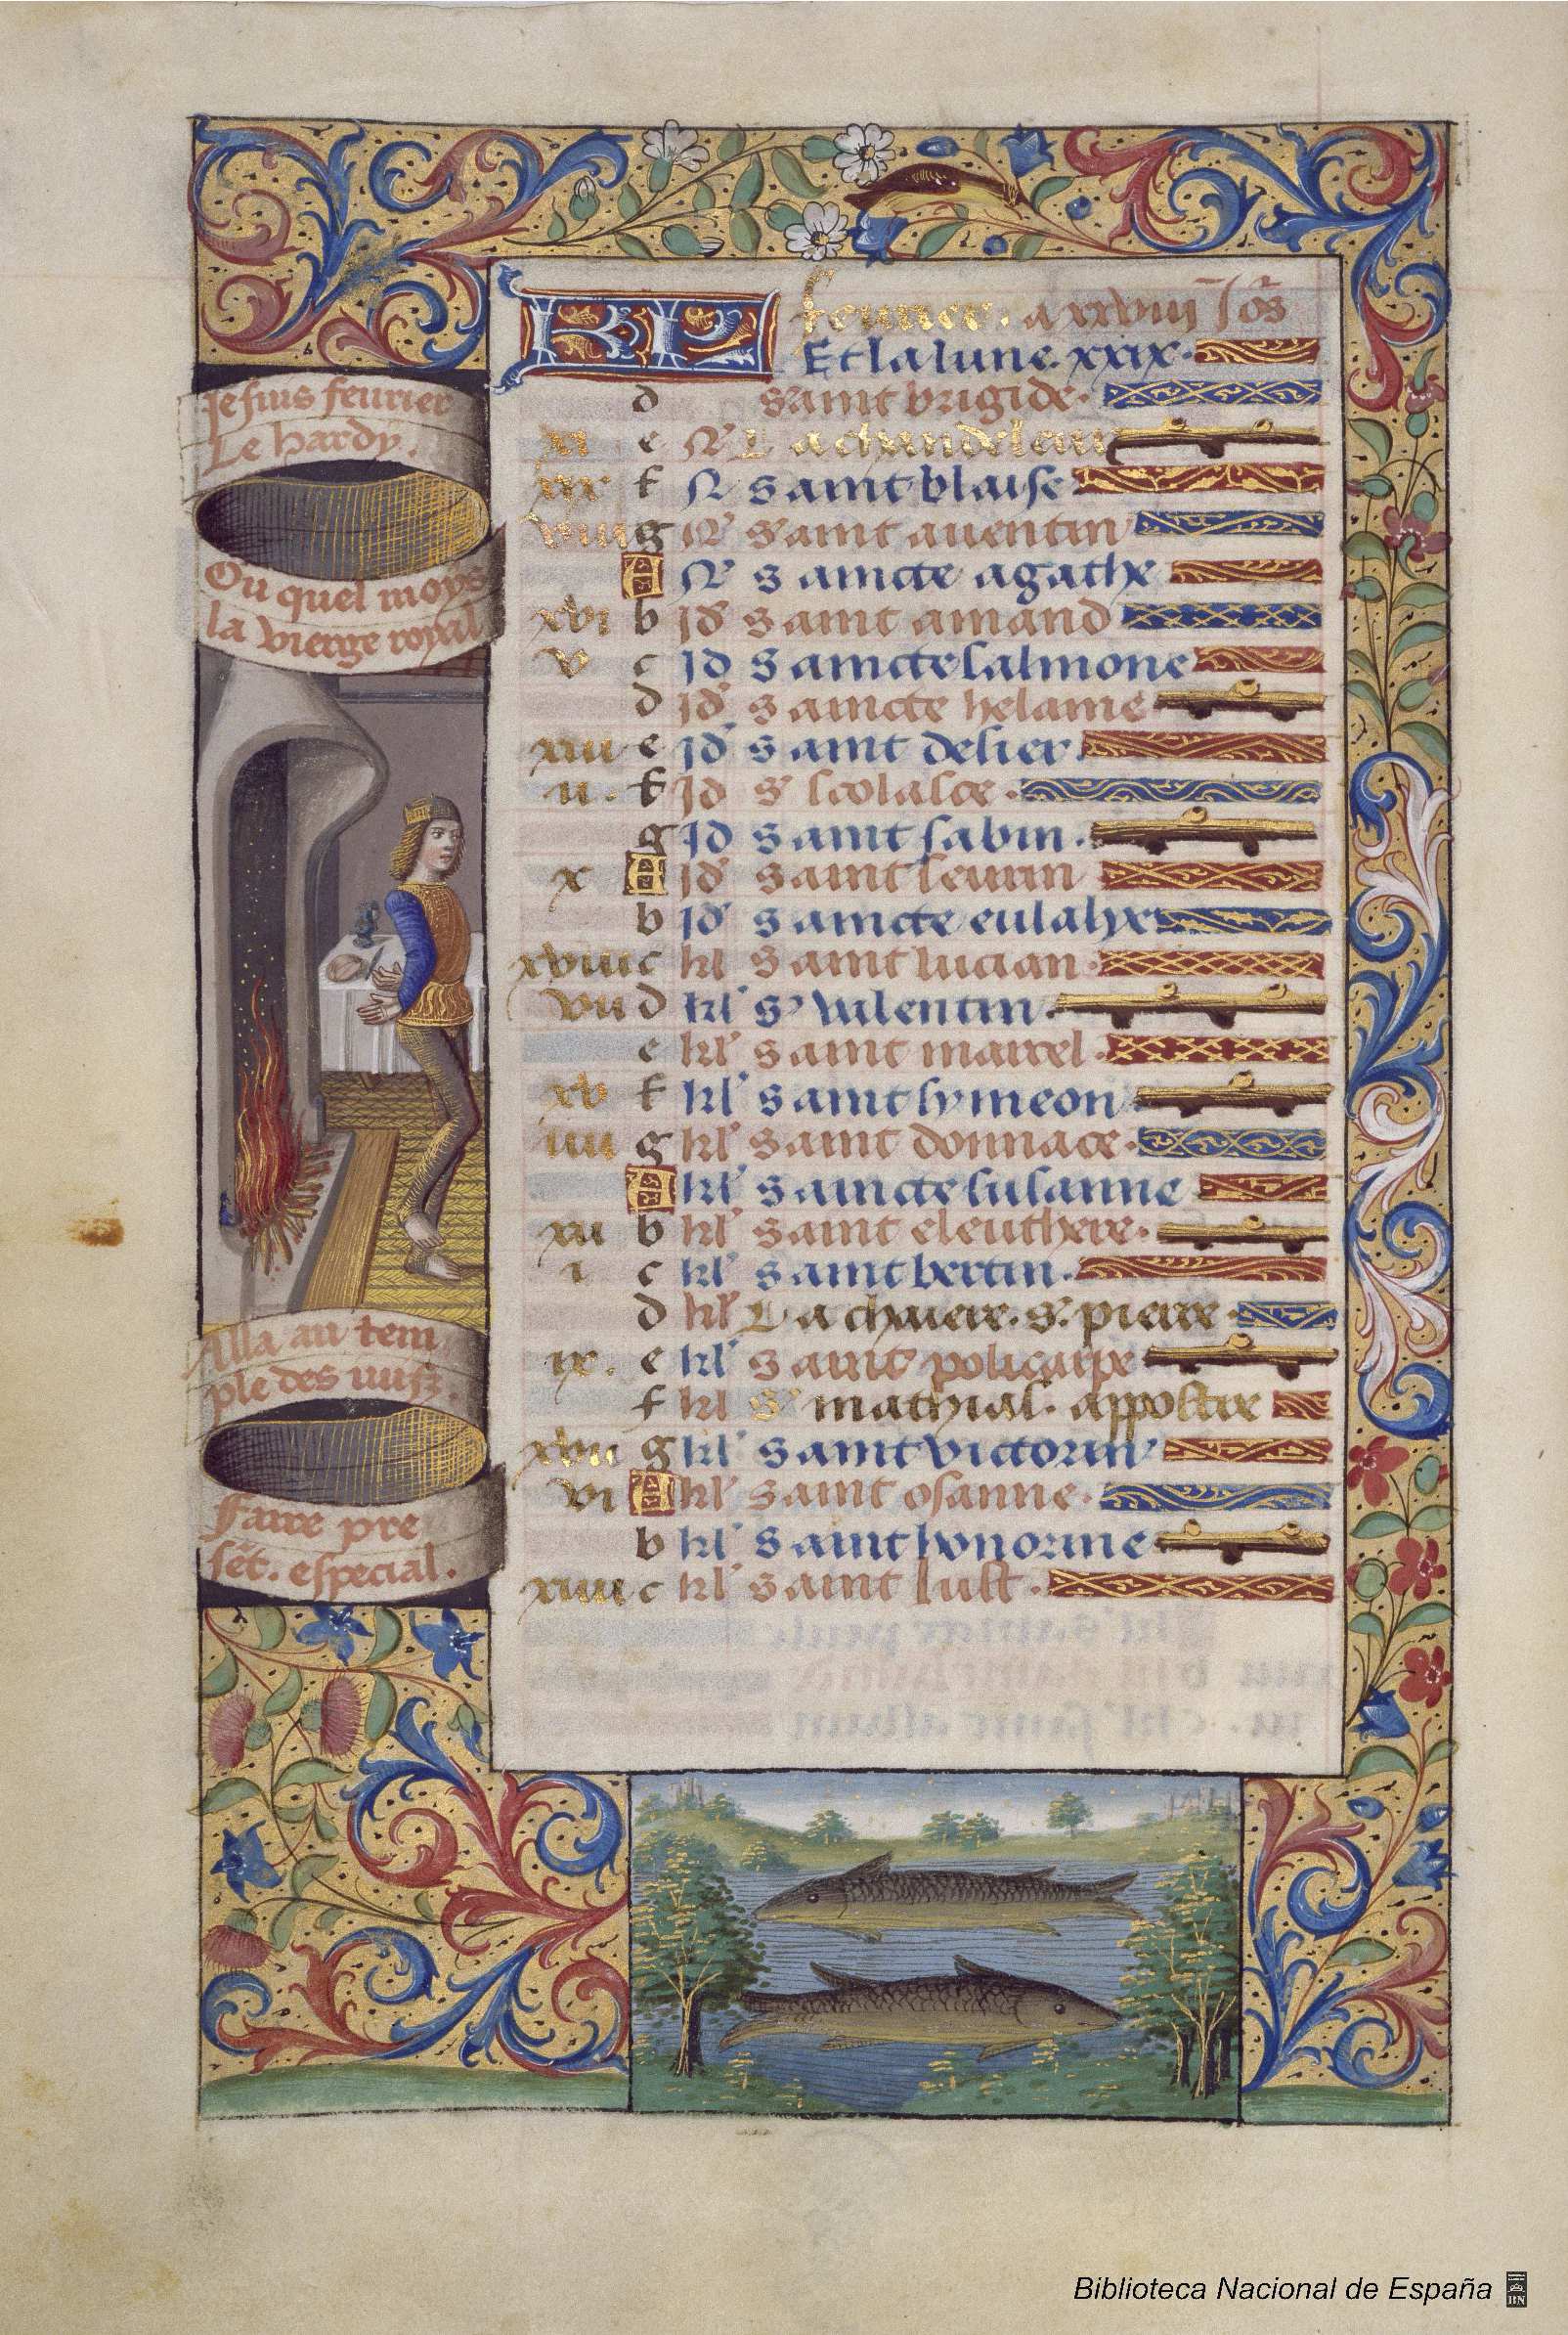 Je suis feurier
Le hardy.
Ou quel moys
la vierge royal
Alla au tem
ple des iuifz.
Faire pre
sẽt. especial.
KL feurier. a xxviii Jõs
Et la lune. xxix.
d saint brigide.
xi e N La chandeleur
xix f N saint blaise
viii g N saint auentin
A N saincte agathe
xvi b Jd saint amand
v c Jd saincte salmone
d Jd saincte helaine
xiii e Jd saint delier
ii. f Jd s' scolasce.
g Jd saint sabin.
x A Jd saint seurin
b Jd saincte eulalye
xviii c kl saint lucian.
vii d kl s' valentin.
e kl saint marcel.
xv f kl saint symeon
iiii g kl saint donnace.
A kl saincte susanne
xii b kl saint eleuthere.
i c kl saint bertin.
d kl La chaiere. s. pierre
ix. e kl saint policarpe
f kl s' mathias. appostre
xvii g kl saint victorin
vi A kl saint osanne.
b kl saint honorine
xiiii c kl saint iust.
Biblioteca Nacional de España
BN